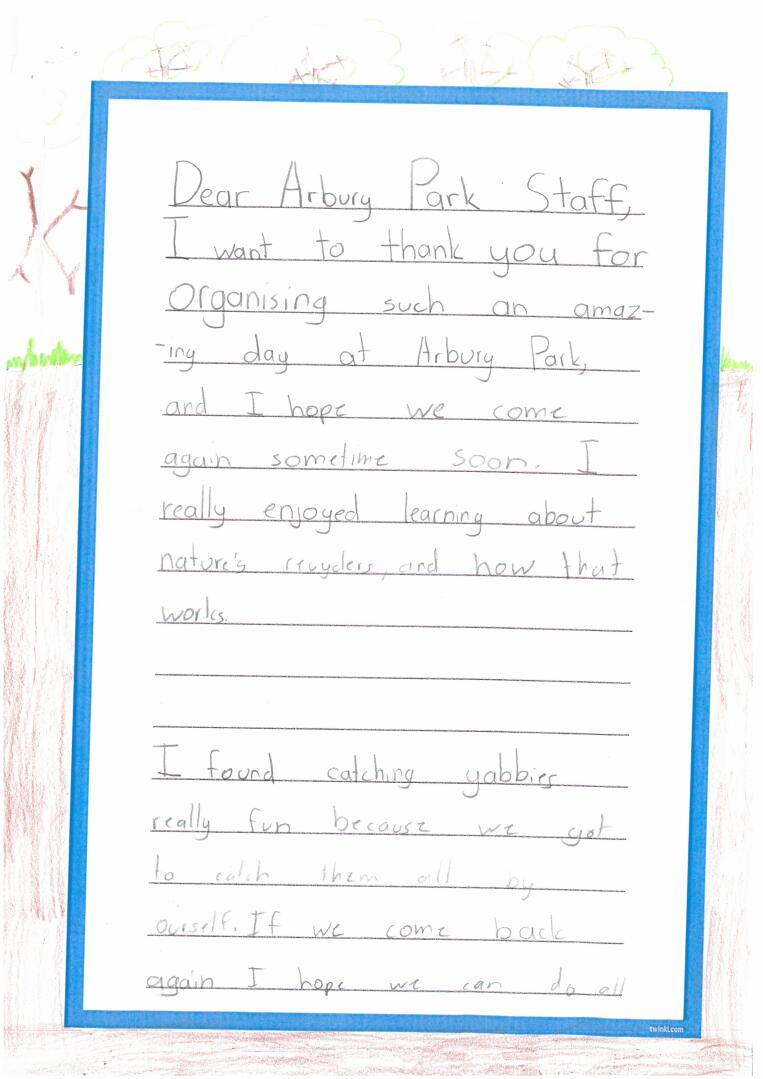 Dear Arbury Park Staff,
I want to thank you for
Organising such an amaz-
-ing day at Arbury Park,
and I hope we come
again sometime soon. I
really enjoyed learning about
nature's recyclers, and how that
works.
I found catching yabbies
really fun because we got
to catch them all by
ourself. If we come back
again I hope we can do all
twinkl.com